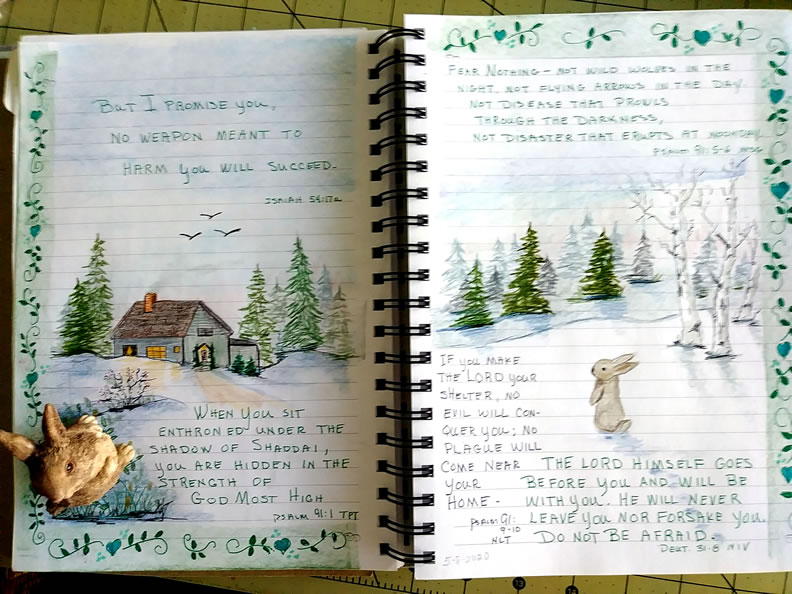 But I promise you,
no weapon meant to
harm you will succeed.
Isaiah 54:17a
When you sit
enthroned under the
shadow of Shaddai,
you are hidden in the
strength of
God Most High
Psalm 91:1 TPT
Fear Nothing - not wild wolves in the
night, not flying arrows in the day,
not disease that prowls
through the darkness,
not disaster that erupts at noonday.
Psalm 91:5-6 MSG
If you make
the Lord your
shelter, no
evil will con-
quer you; no
plague will
come near
your
home -
Psalm 91:
9-10
NLT
The Lord Himself goes
before you and will be
with you. He will never
leave you nor forsake you.
Do not be afraid.
Deut. 31:8 NIV
5-5-2020
13